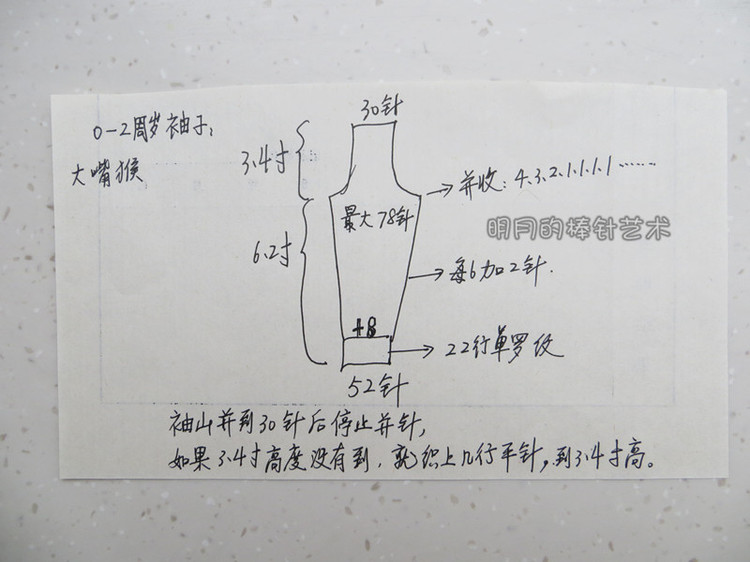 30针
0-2周岁袖子:
大嘴猴
3.4寸
并收:4.3.2.1.1.1.1……
最大78针
明月的棒针艺术
6.2寸
每6加2针.
+8
22行单罗纹
52针
袖山并到30针后停止并针,
如果3.4寸高度没有到,就织上几行平针,到3.4寸高。